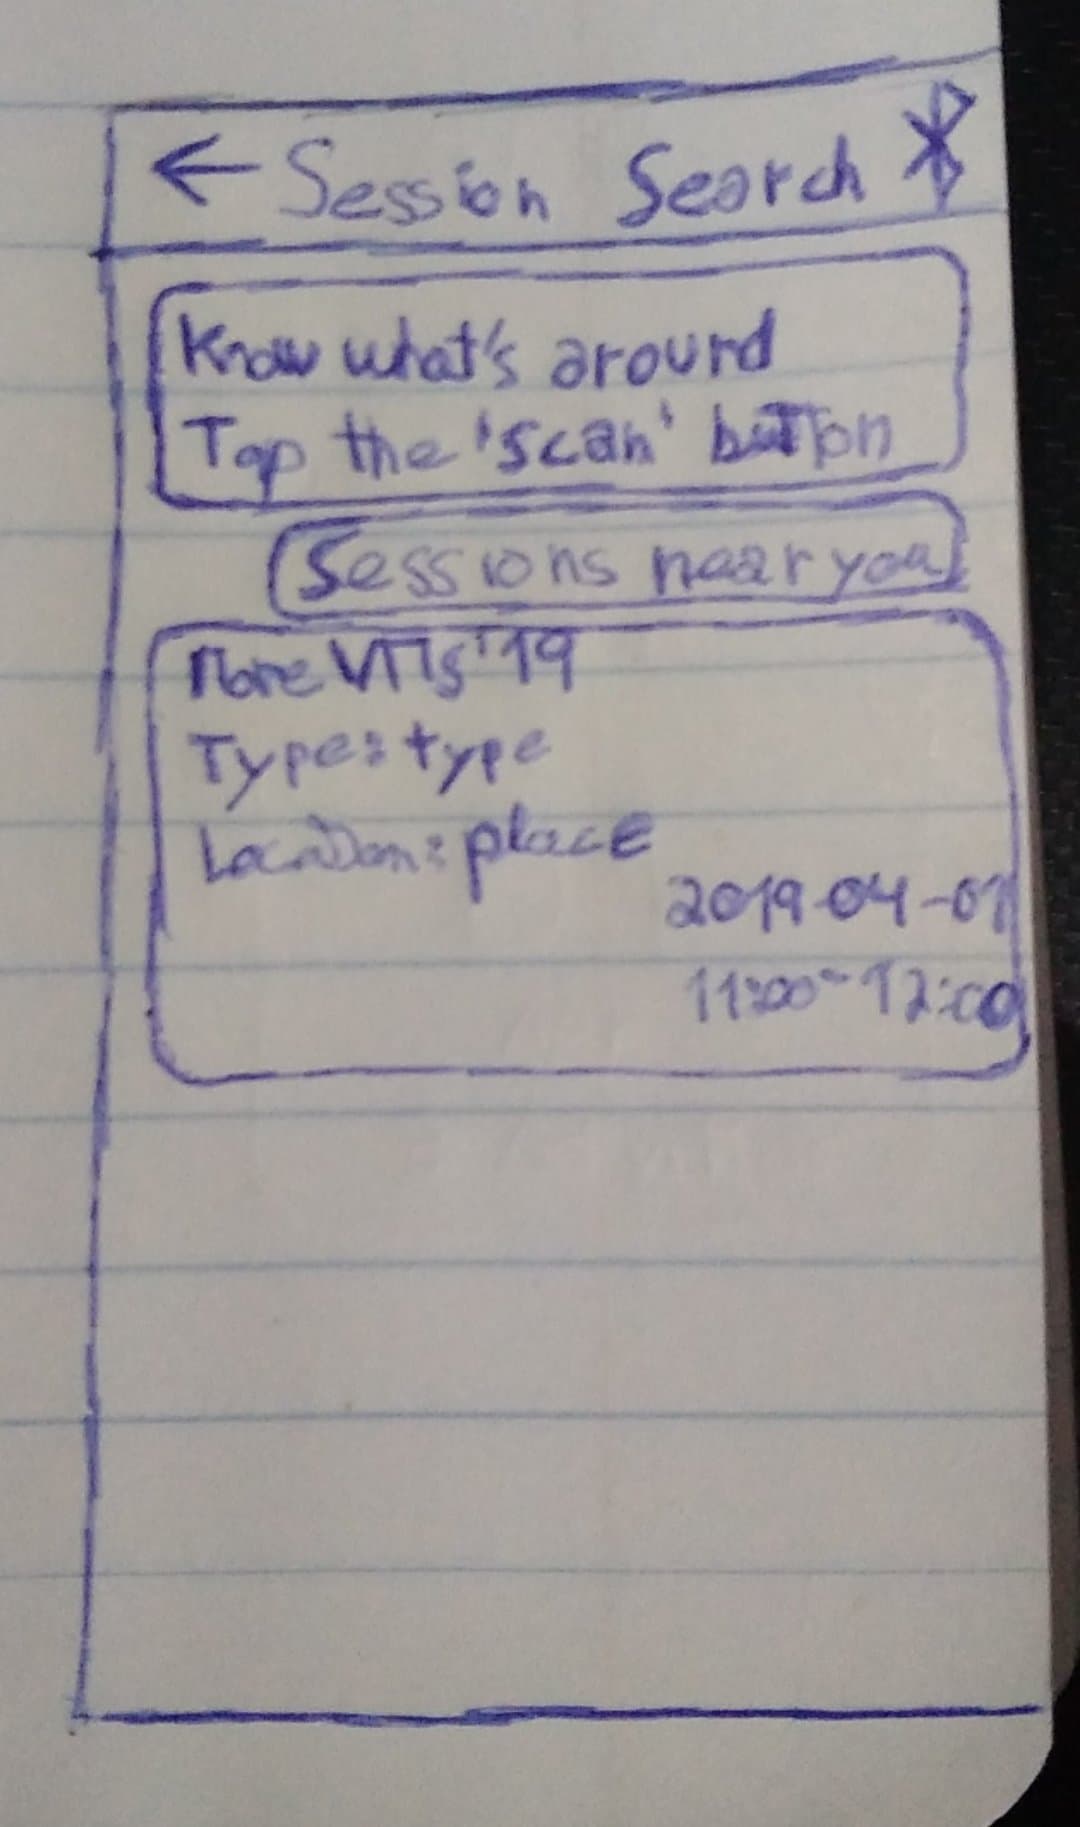 ← Session Search
Know what's around
Tap the 'scan' button
Sessions near you
MoreVMs'19
Type: type
Location: place
2019-04-01
11:00-12:00